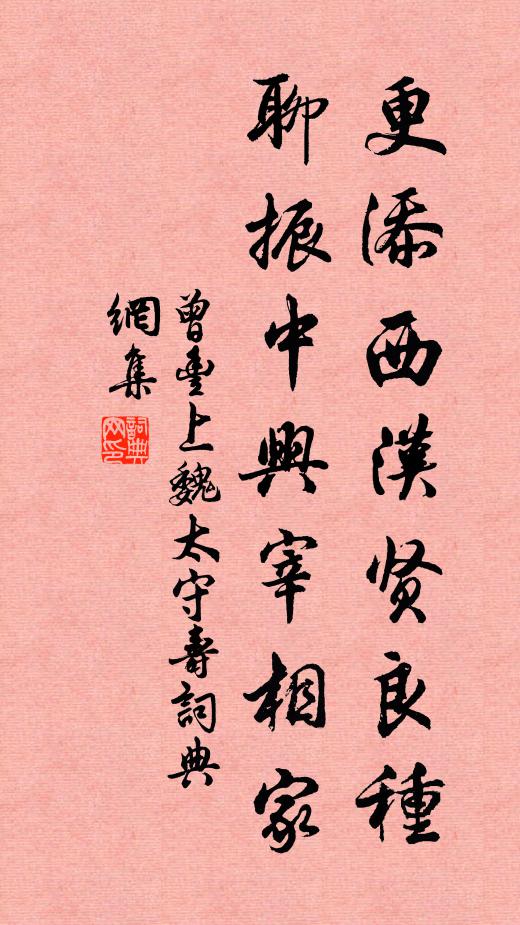 更添西漢贤良種
聊振中興宰相家
曾豐上魏太守壽詞典
網集
詞典
网印